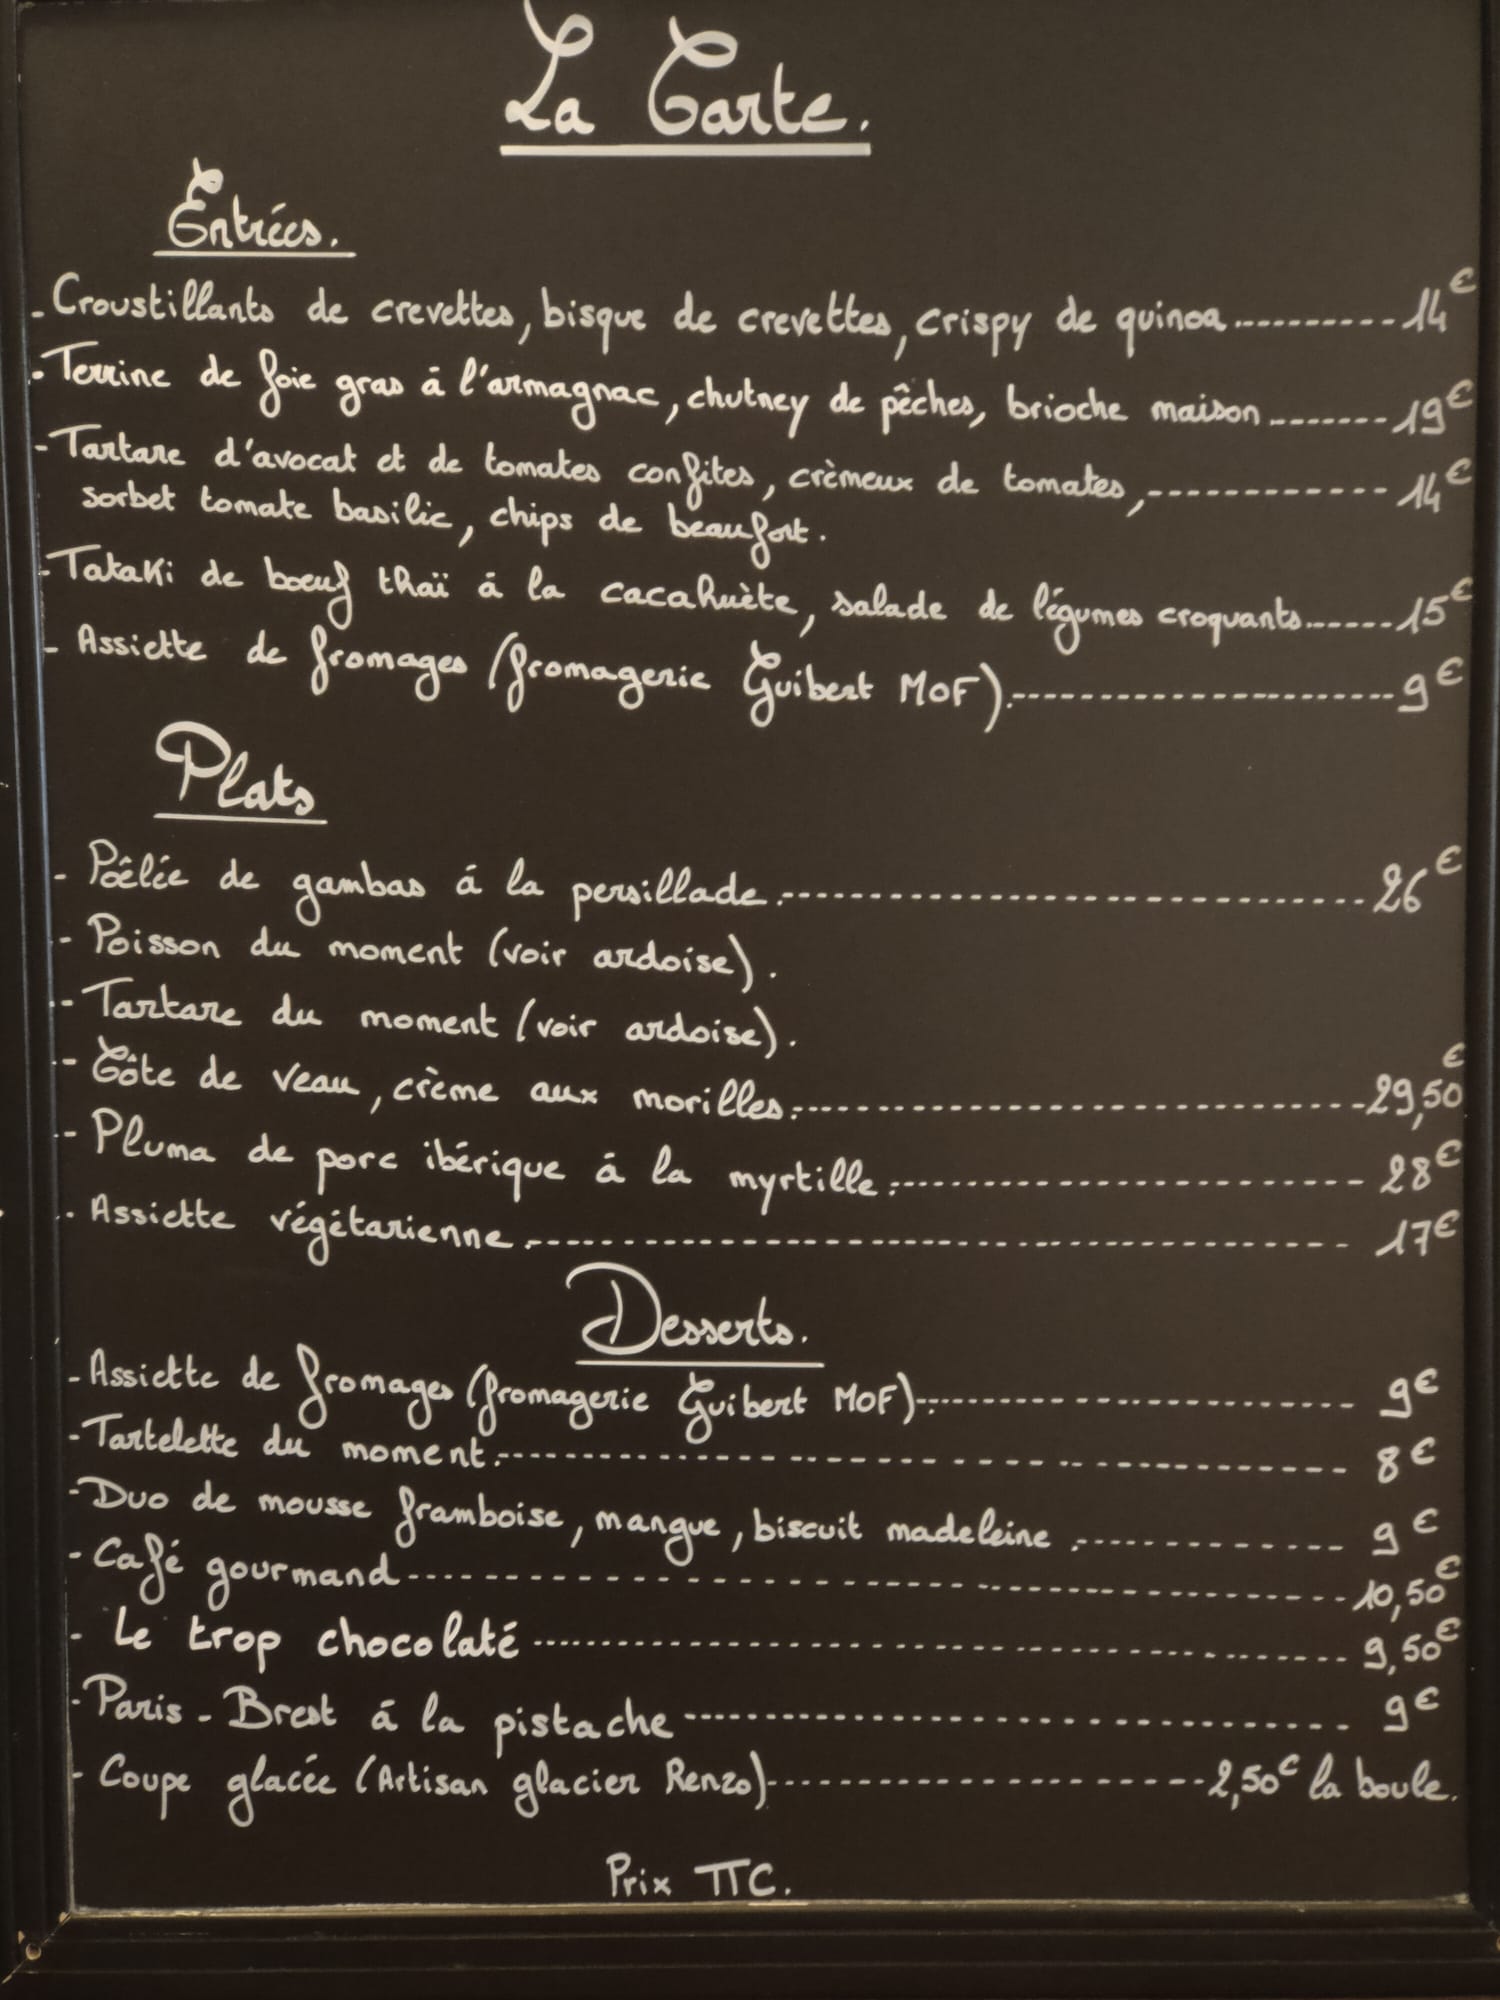 La Carte.
Entrées.
- Croustillants de crevettes, bisque de crevettes, crispy de quinoa ---------- 14€
- Terrine de foie gras à l'armagnac, chutney de pêches, brioche maison ------- 19€
- Tartare d'avocat et de tomates confites, crèmeux de tomates, ------------ 14€
sorbet tomate basilic, chips de beaufort.
- Tataki de boeuf thaï à la cacahuète, salade de légumes croquants ------ 15€
- Assiette de fromages (fromagerie Guibert MOF). -------------------- 9€
Plats
- Pôêlée de gambas à la persillade. ------------------------------ 26€
- Poisson du moment (voir ardoise).
- Tartare du moment (voir ardoise).
- Côte de veau, crème aux morilles. ------------------------------ 29,50€
- Pluma de porc ibérique à la myrtille. ------------------------- 28€
- Assiette végétarienne. ---------------------------------------- 17€
Desserts.
- Assiette de fromages (fromagerie Guibert MOF). ---------------------- 9€
- Tartelette du moment. -------------------------------------------- 8€
- Duo de mousse framboise, mangue, biscuit madeleine. ------------- 9€
- Café gourmand ---------------------------------------------------- 10,50€
- Le trop chocolaté ------------------------------------------------ 9,50€
- Paris - Brest à la pistache ------------------------------------- 9€
- Coupe glacée (Artisan glacier Renzo) ---------------------- 2,50€ la boule.
Prix TTC.